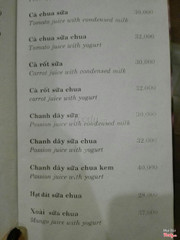 Cà chua sữa
Tomato juice with condensed milk
Cà chua sữa chua 32,000
Tomato juice with yogurt
Cà rốt sữa
Carrot juice with condensed milk
Cà rốt sữa chua 32,000
Carrot juice with yogurt
Chanh dây sữa
Passion juice with condensed milk
Chanh dây sữa chua
Passion juice with yogurt
Chanh dây sữa chua kem 40,000
Passion juice with yogurt
Hạt dát sữa chua
Xoài sữa chua
Mango juice with yogurt